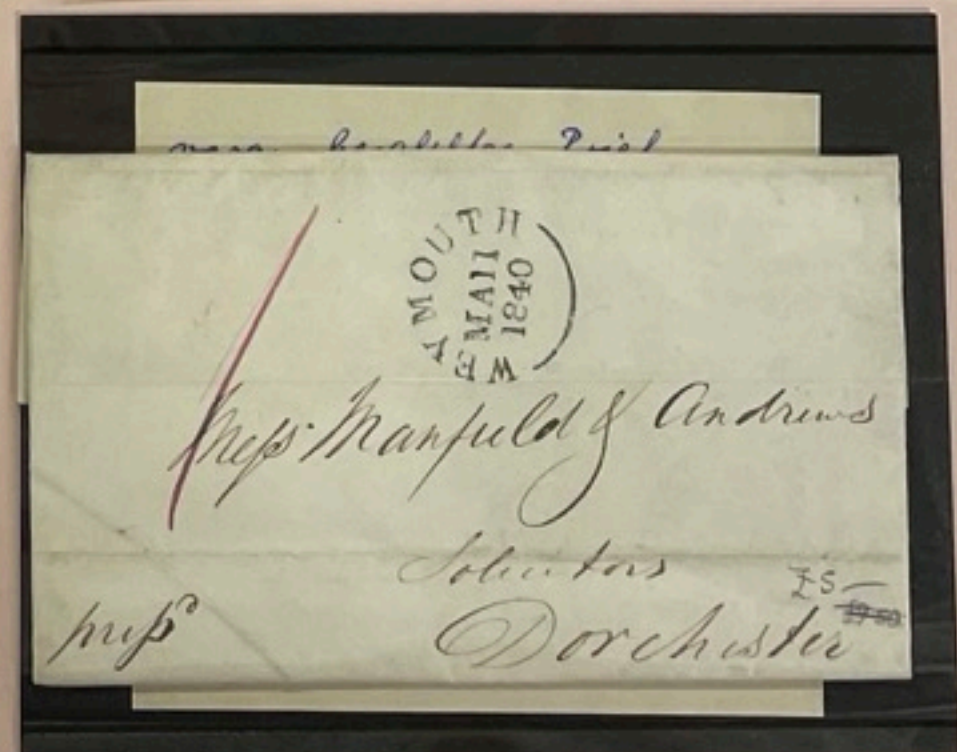 WEYMOUTH
MA11
1840
Mess.ʳˢ Manfield & Andrews
Solicitors
£5 —
Dorchester